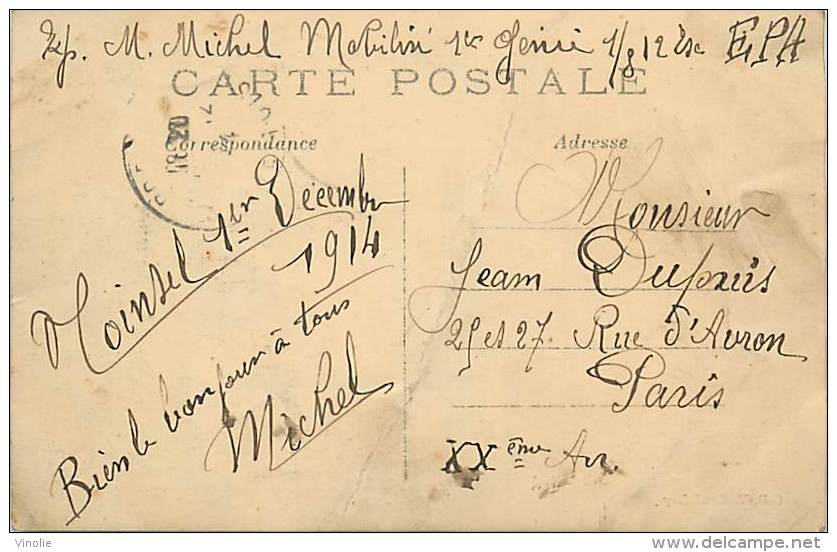 Exp. M. Michel Mobilisé 1er Génie 1/812 Esc EPA
CARTE POSTALE
Correspondance
Adresse
1er Décembre
1914
Bien le bonjour à tous
Michel
Monsieur
Jean Dupuis
25 et 27. Rue d'Avron
Paris
XXème Arr.
Vinolie
delcampe.net